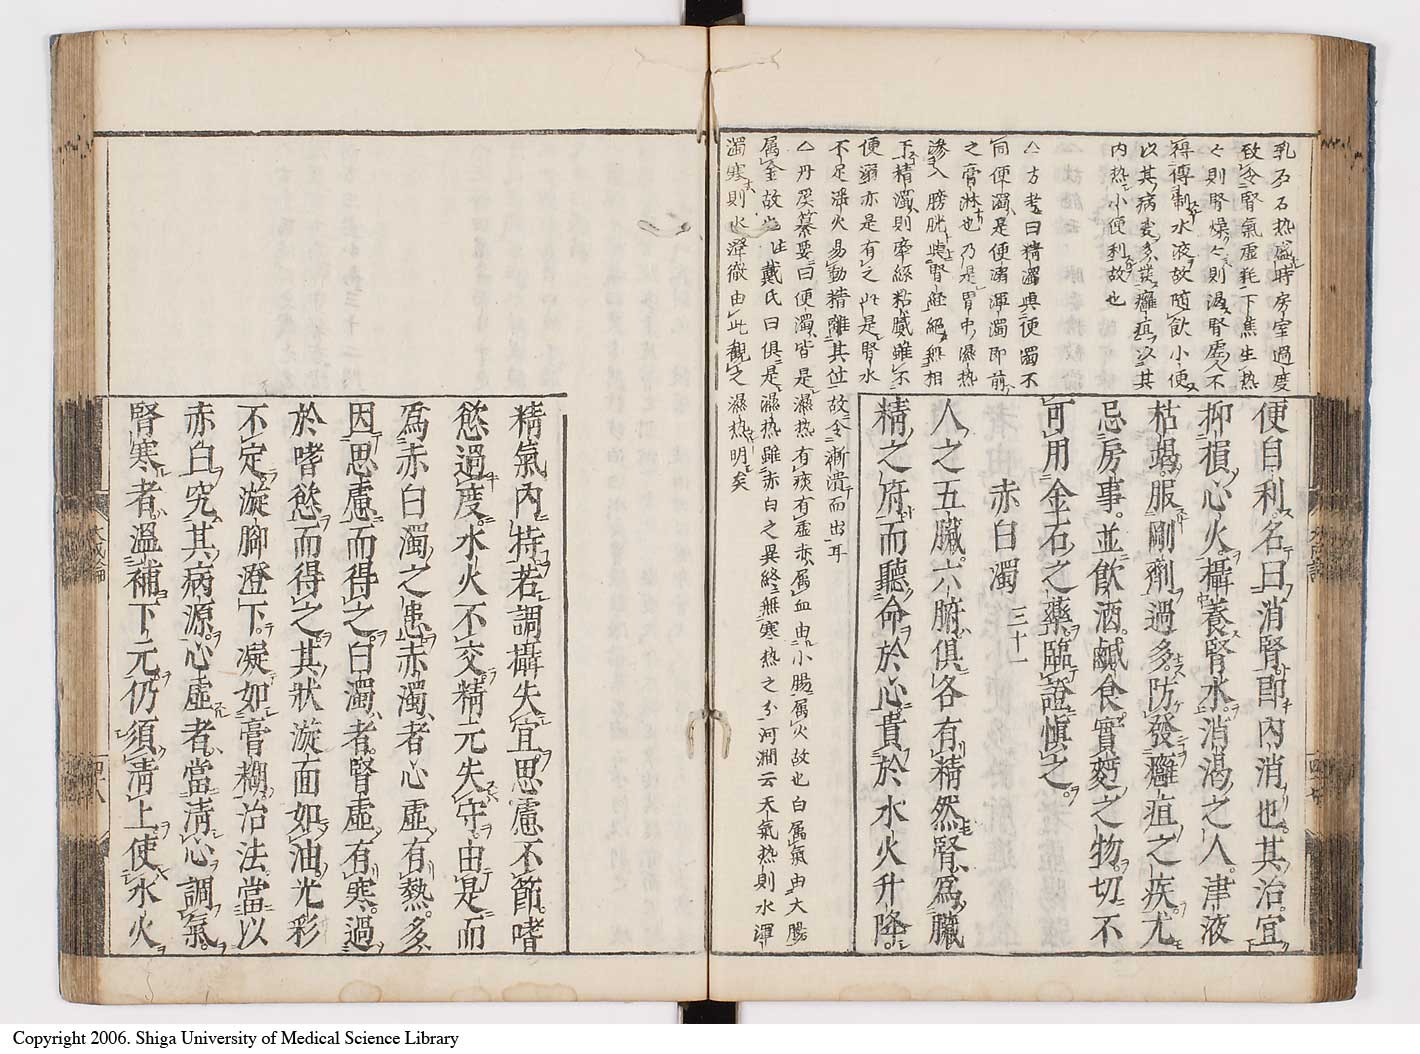 乳石石热盛時房室過度
致令腎氣虚耗下焦生热
々則腎燥々則渇腎虚又不
得傳制水液故随飲小便
以其病変多発癰疽以其
内热小便利故也
△方考曰精濁與便濁不
同便濁是便溺渾濁即前
之膏淋也乃是胃中濕热
滲入膀胱與腎経絶無相
干精濁則牽絲粘膩雖不
便溺亦是有之此是腎水
不足淫火易動精離其位故令漸潰而出耳
△丹溪纂要曰便濁皆是濕热有痰有虚赤属血由小腸属火故也白属氣由大腸
属金故也 戴氏曰俱是濕热雖赤白之異終無寒热之分河澗云天氣热則水渾
濁寒則水澄徹由此観之濕热明矣
便自利名曰消腎即内消也其治宜
抑損心火攝養腎水消渴之人津液
枯竭服剛劑過多防發癰疽之疾尤
忌房事並飲酒鹹食實麪之物切不
可用金石之藥臨證愼之
赤白濁 三十一
人之五臓六腑俱各有精然腎爲臓
精之府而聽命於心貴於水火升降
精氣内持若調攝失宜思慮不節嗜
慾過度水火不交精元失守由是而
爲赤白濁之患赤濁者心虚有熱多
因思慮而得之白濁者腎虚有寒過
於嗜慾而得之其狀漩面如油光彩
不定漩脚澄下凝如膏糊治法當以
赤白究其病源心虚者當淸心調氣
腎寒者溫補下元仍須淸上使水火
大成論
四十八
Copyright 2006. Shiga University of Medical Science Library